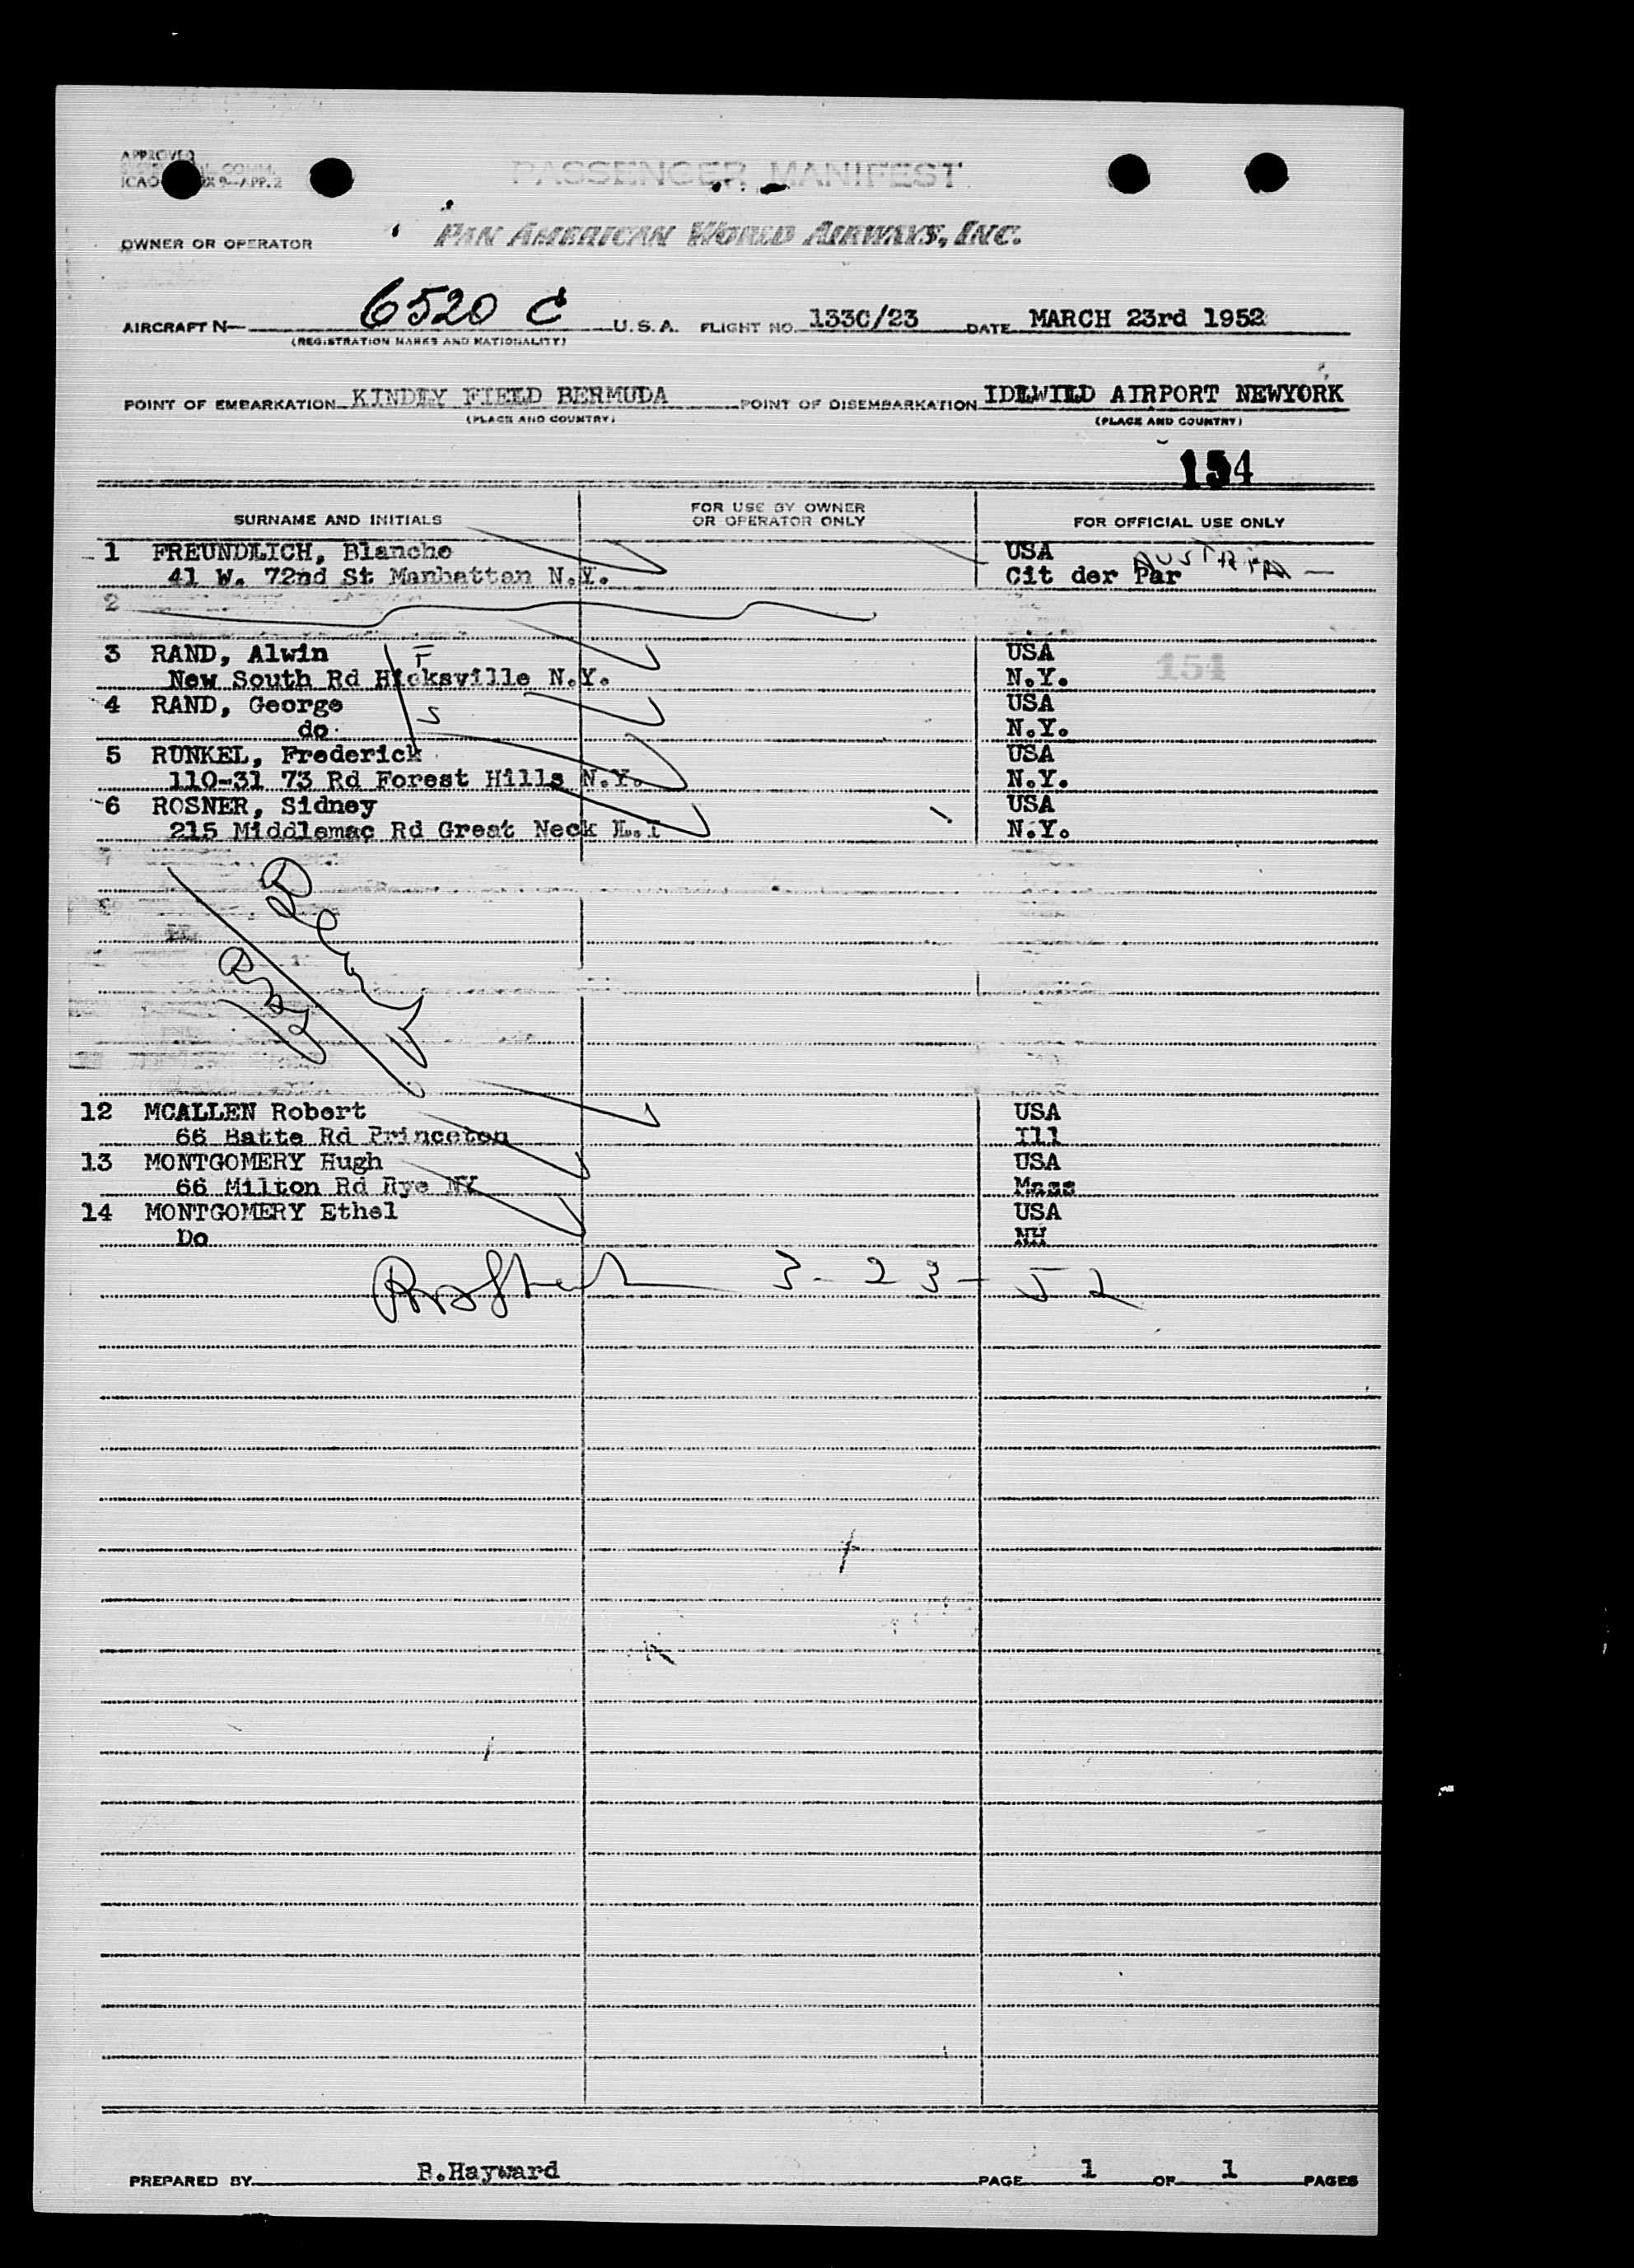 APPROVED
ICAO 9-APP.2
PASSENGER MANIFEST
OWNER OR OPERATOR PAN AMERICAN WORLD AIRWAYS, INC.
AIRCRAFT N— 6520 C U.S.A. FLIGHT NO. 133C/23 DATE MARCH 23rd 1952
(REGISTRATION MARKS AND NATIONALITY)
POINT OF EMBARKATION KINDLY FIELD BERMUDA POINT OF DISEMBARKATION IDLWILD AIRPORT NEWYORK
(PLACE AND COUNTRY) (PLACE AND COUNTRY)
154
SURNAME AND INITIALS FOR USE BY OWNER OR OPERATOR ONLY FOR OFFICIAL USE ONLY
1 FREUNDLICH, Blanche USA
41 W. 72nd St Manhattan N.Y. Cit der Par AUSTRIA —
2
3 RAND, Alwin F USA 154
New South Rd Hicksville N.Y. N.Y.
4 RAND, George S USA
do N.Y.
5 RUNKEL, Frederick USA
110-31 73 Rd Forest Hills N.Y. N.Y.
6 ROSNER, Sidney USA
215 Middlemac Rd Great Neck L.I N.Y.
12 MCALLEN Robert USA
66 Batte Rd Princeton Ill
13 MONTGOMERY Hugh USA
66 Milton Rd Rye NY Mass
14 MONTGOMERY Ethel USA
Do NH
3-23-52
PREPARED BY B.Hayward PAGE 1 OF 1 PAGES